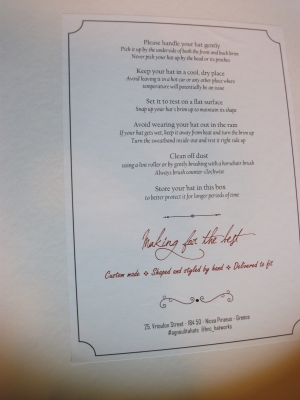 Please handle your hat gently
Pick it up by the underside of both the front and back brim
Never pick your hat up by the head or its pinches
Keep your hat in a cool, dry place
Avoid leaving it in a hot car or any other place where
temperature will potentially be an issue
Set it to rest on a flat surface
Snap up your hat's brim up to maintain its shape
Avoid wearing your hat out in the rain
If your hat gets wet, keep it away from heat and turn the brim up
Turn the sweatband inside out and rest it right side up
Clean off dust
using a lint roller or by gently brushing with a horsehair brush
Always brush counter-clockwise
Store your hat in this box
to better protect it for longer periods of time
Making for the best
Custom made ❖ Shaped and styled by hand ❖ Delivered to fit
25, Vrioulon Street - 184 50 - Nicea Piraeus - Greece
@hvc_hatworks